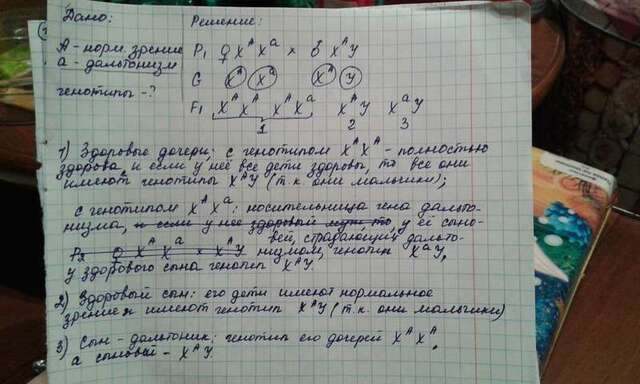 Дано:
Решение:
А - норм. зрение
а - дальтонизм
генотипы - ?
P₁ ♀ XᴬXᵃ × ♂ XᴬY
G Xᴬ Xᵃ Xᴬ Y
F₁ XᴬXᴬ XᴬXᵃ XᴬY XᵃY
1 2 3
1) Здоровые дочери; с генотипом XᴬXᴬ - полностью
здорова, и если у неё все дети здоровы, то все они
имеют генотипы XᴬY (т.к. они мальчики);
с генотипом XᴬXᵃ: носительница гена дальто-
низма, и если у нее здоровый муж то, у её сыно-
вей, страдающий дальто-
P₂ ♀ XᴬXᵃ × XᴬY низмом, генотип XᵃY,
у здорового сына генотип XᴬY.
2) Здоровый сын: его дети имеют нормальное
зрение и имеют генотип XᴬY (т.к. они мальчики)
3) Сын - дальтоник: генотип его дочерей XᴬXᴬ,
а сыновей - XᴬY.